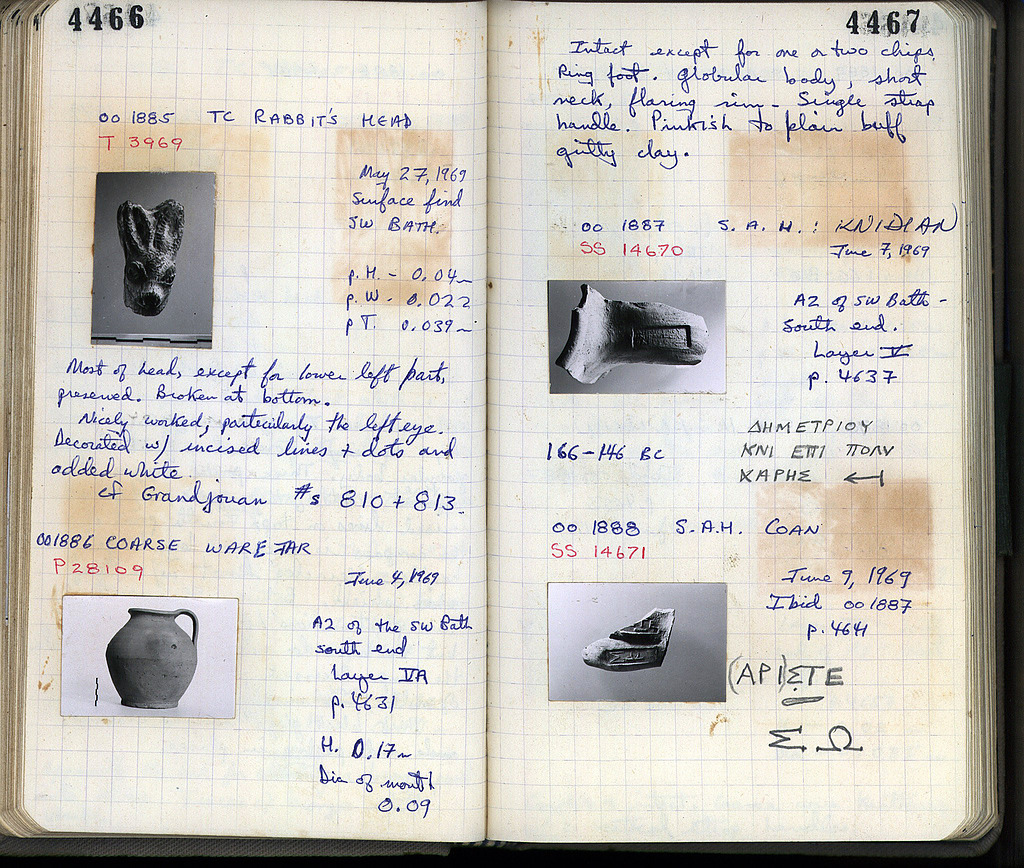 4466
OO 1885 TC RABBIT'S HEAD
T 3969
May 27, 1969
Surface find
SW BATH.
p. H. - 0.04m
p. W - 0.022
p T. 0.039m
Most of head, except for lower left part,
preserved. Broken at bottom.
Nicely worked, particularly the left eye.
Decorated w/ incised lines + dots and
added white.
cf Grandjouan #s 810 + 813.
OO1886 COARSE WARE JAR
P 28109
June 4, 1969
A2 of the SW Bath
south end
Layer VA
p. 4631
H. 0.17m
Dia of mouth
0.09
4467
Intact except for one or two chips.
Ring foot. Globular body, short
neck, flaring rim - Single strap
handle. Pinkish to plain buff
gritty clay.
OO 1887 S. A. H. : KNIDIAN
SS 14670
June 7, 1969
A2 of SW Bath -
South end.
Layer V
p. 4637
ΔΗΜΕΤΡΙΟΥ
166-146 BC
ΚΝΙ ΕΠΙ ΠΟΛΥ
ΧΑΡΗΣ ←
OO 1888 S.A.H. COAN
SS 14671
June 9, 1969
Ibid OO 1887
p. 4641
(ΑΡΙ)ΣΤΕ
Σ Ω